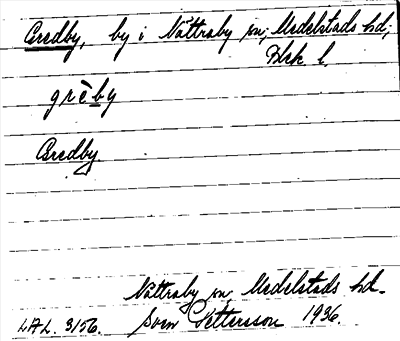 Gredby, by i Nättraby sn; Medelstads hd;
Blek l.
grèby
Gredby
Nättraby sn, Medelstads hd.
LAL. 3156. Sven Pettersson 1936.